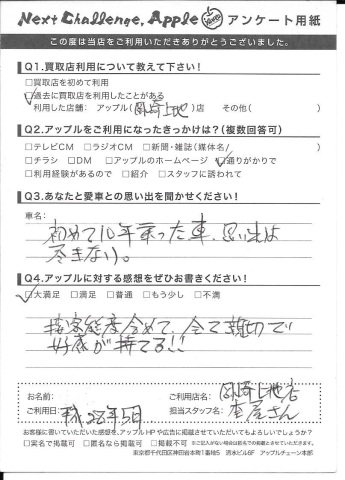 Next Challenge, Apple アンケート用紙
この度は当店をご利用いただきありがとうございました。
Q1.買取店利用について教えて下さい!
□買取店を初めて利用
□過去に買取店を利用したことがある
利用した店舗: アップル(岡崎上地)店 その他( )
Q2.アップルをご利用になったきっかけは?(複数回答可)
□テレビCM □ラジオCM □新聞・雑誌(媒体名/ )
□チラシ □DM □アップルのホームページ □通りがかりで
□利用経験があるので □紹介 □スタッフに誘われて
Q3.あなたと愛車との思い出を聞かせください!
車名:
初めて10年乗った車、思い出は
尽きない。
Q4.アップルに対する感想をぜひお書きください!
□大満足 □満足 □普通 □もう少し □不満
接客態度含めて、全て親切で
好感が持てる!!
お名前: ご利用店名: 岡崎上地店
ご利用日: 担当スタッフ名: さん
お客様に書いていただいた感想を、アップルHPや広告に掲載させていただいてもよろしいでしょうか?
□実名で掲載可 □匿名なら掲載可 □掲載不可 ※ご記入がない場合は匿名での掲載とさせていただきます。
東京都千代田区神田岩本町1番地5 清水ビル6F アップルチェーン本部